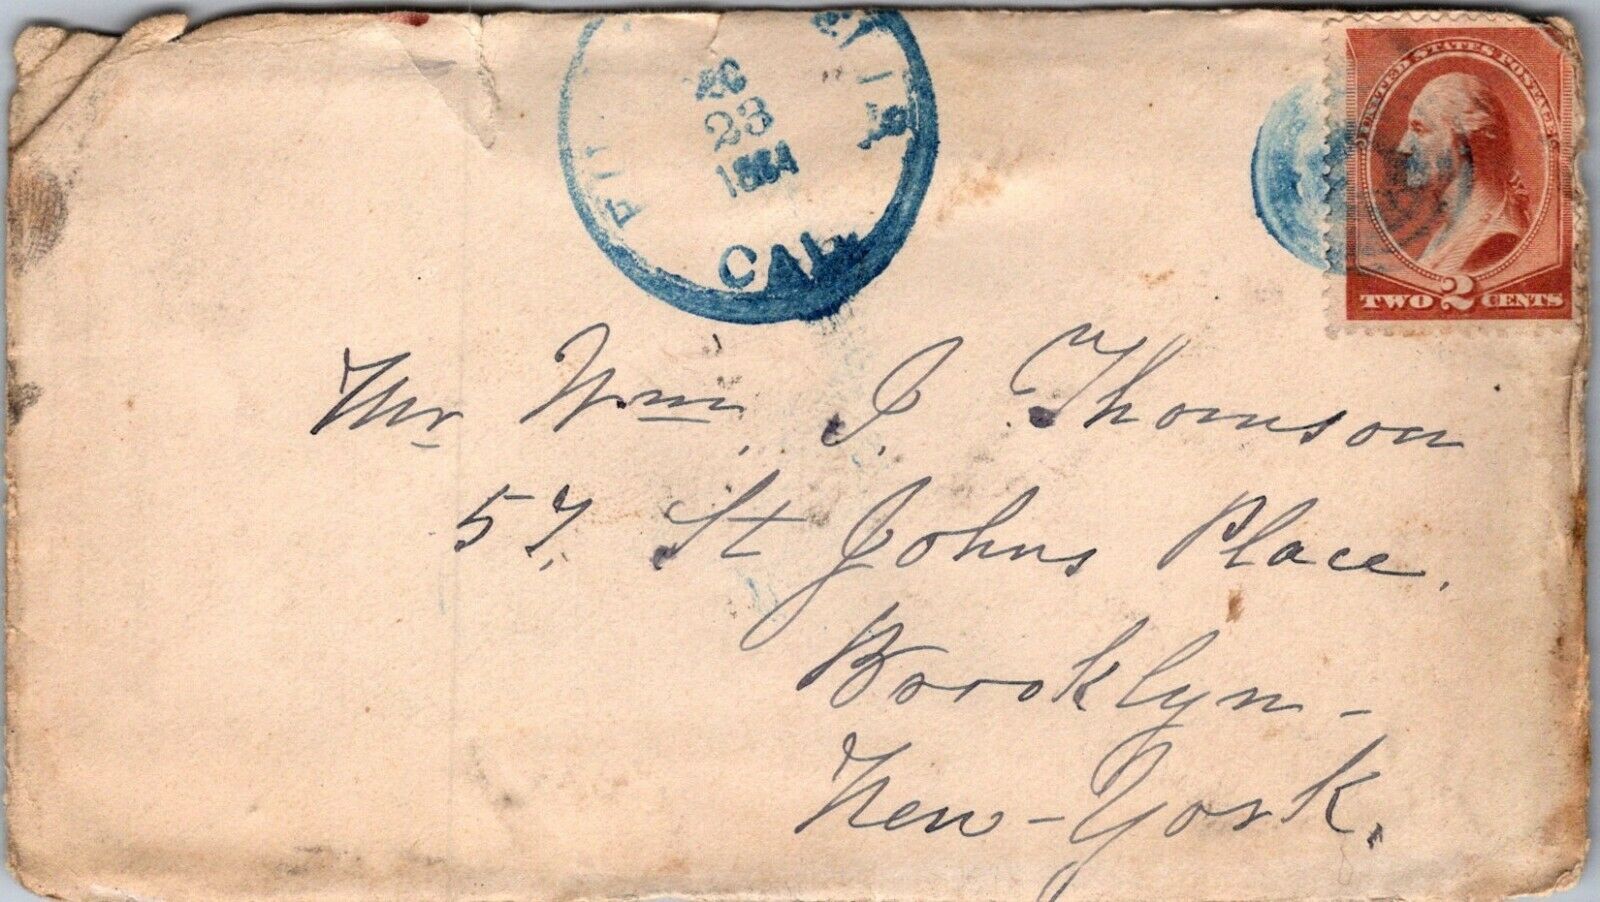 DEC
23
1884
CAL.
UNITED STATES POSTAGE
TWO 2 CENTS
Mr Wm. J. Thomson
57. St Johns Place.
Brooklyn-
New-York.